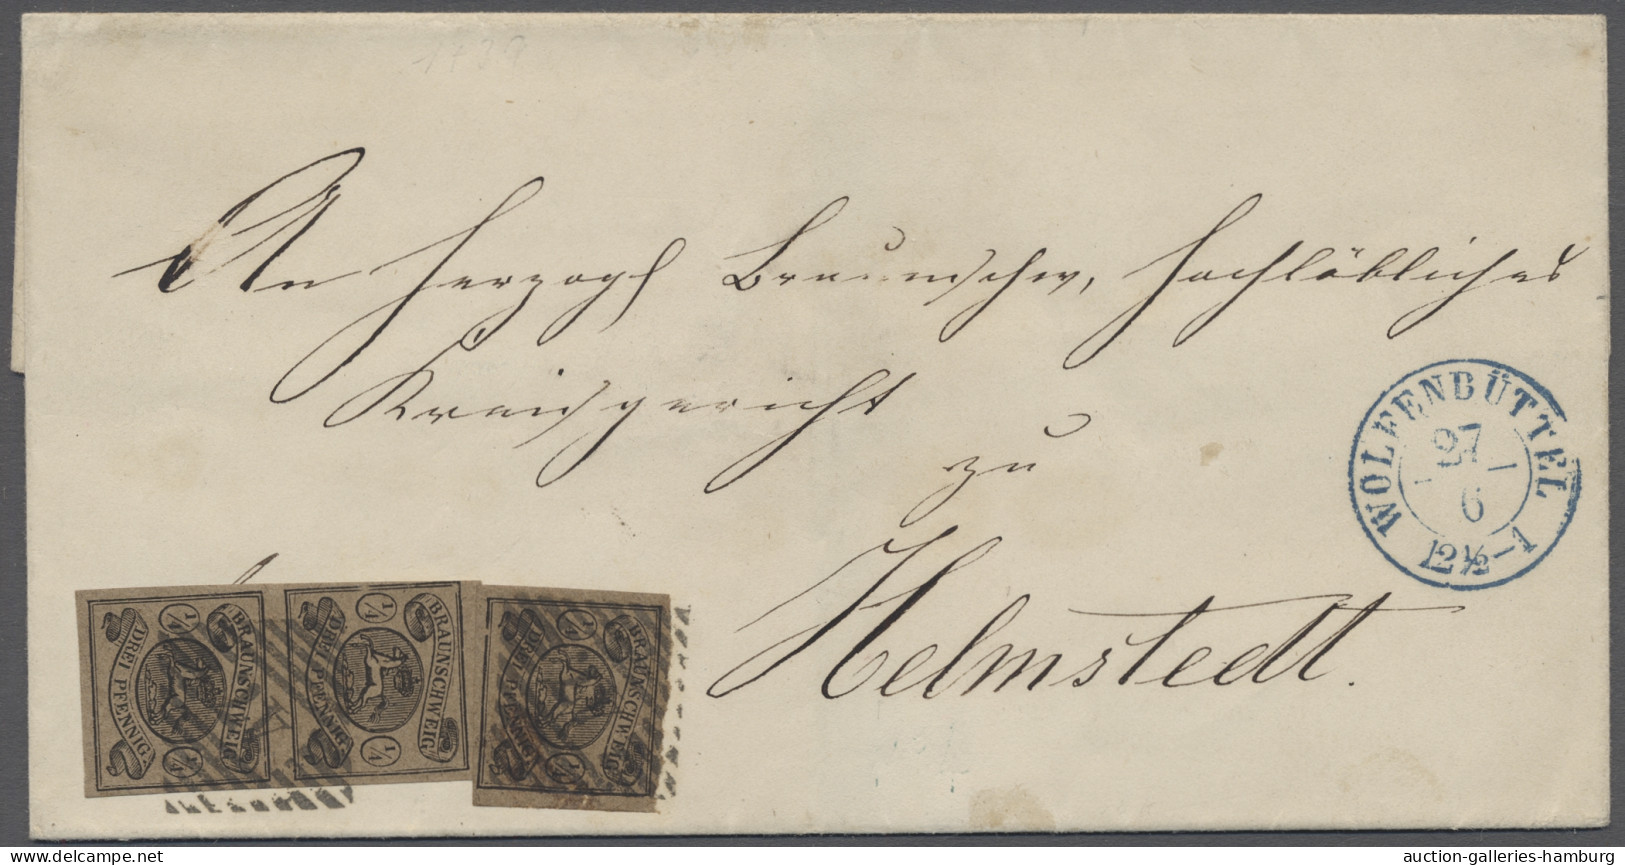 An Herzogl Braunschw, hochlöbliches
Kreisgericht
zu
Helmstedt.
WOLFENBÜTTEL
27
6
12½–1
BRAUNSCHWEIG
DREI PFENNIG
¼
¼
BRAUNSCHWEIG
DREI PFENNIG
¼
¼
BRAUNSCHWEIG
DREI PFENNIG
¼
¼
auction-galleries-hamburg